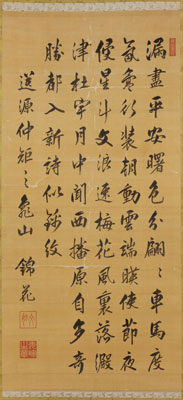 漏盡平安曙色分翩〻車馬度
氛氳行裝朝動雲端暎使節夜
侵星斗文浪速梅花風裏落澱
津杜宇月中聞西播原自多奇
勝都入新詩似錦紋
送源仲矩之龜山 錦花